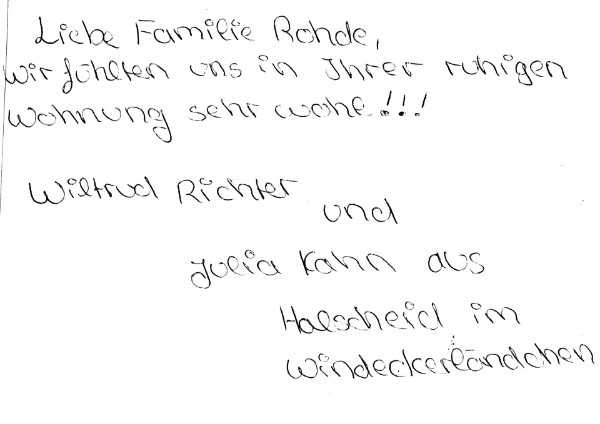 Liebe Familie Rohde,
wir fühlten uns in Ihrer ruhigen
Wohnung sehr wohl!!!
Wiltrud Richter
und
Julia Kahn aus
Halscheid im
Windeckerländchen